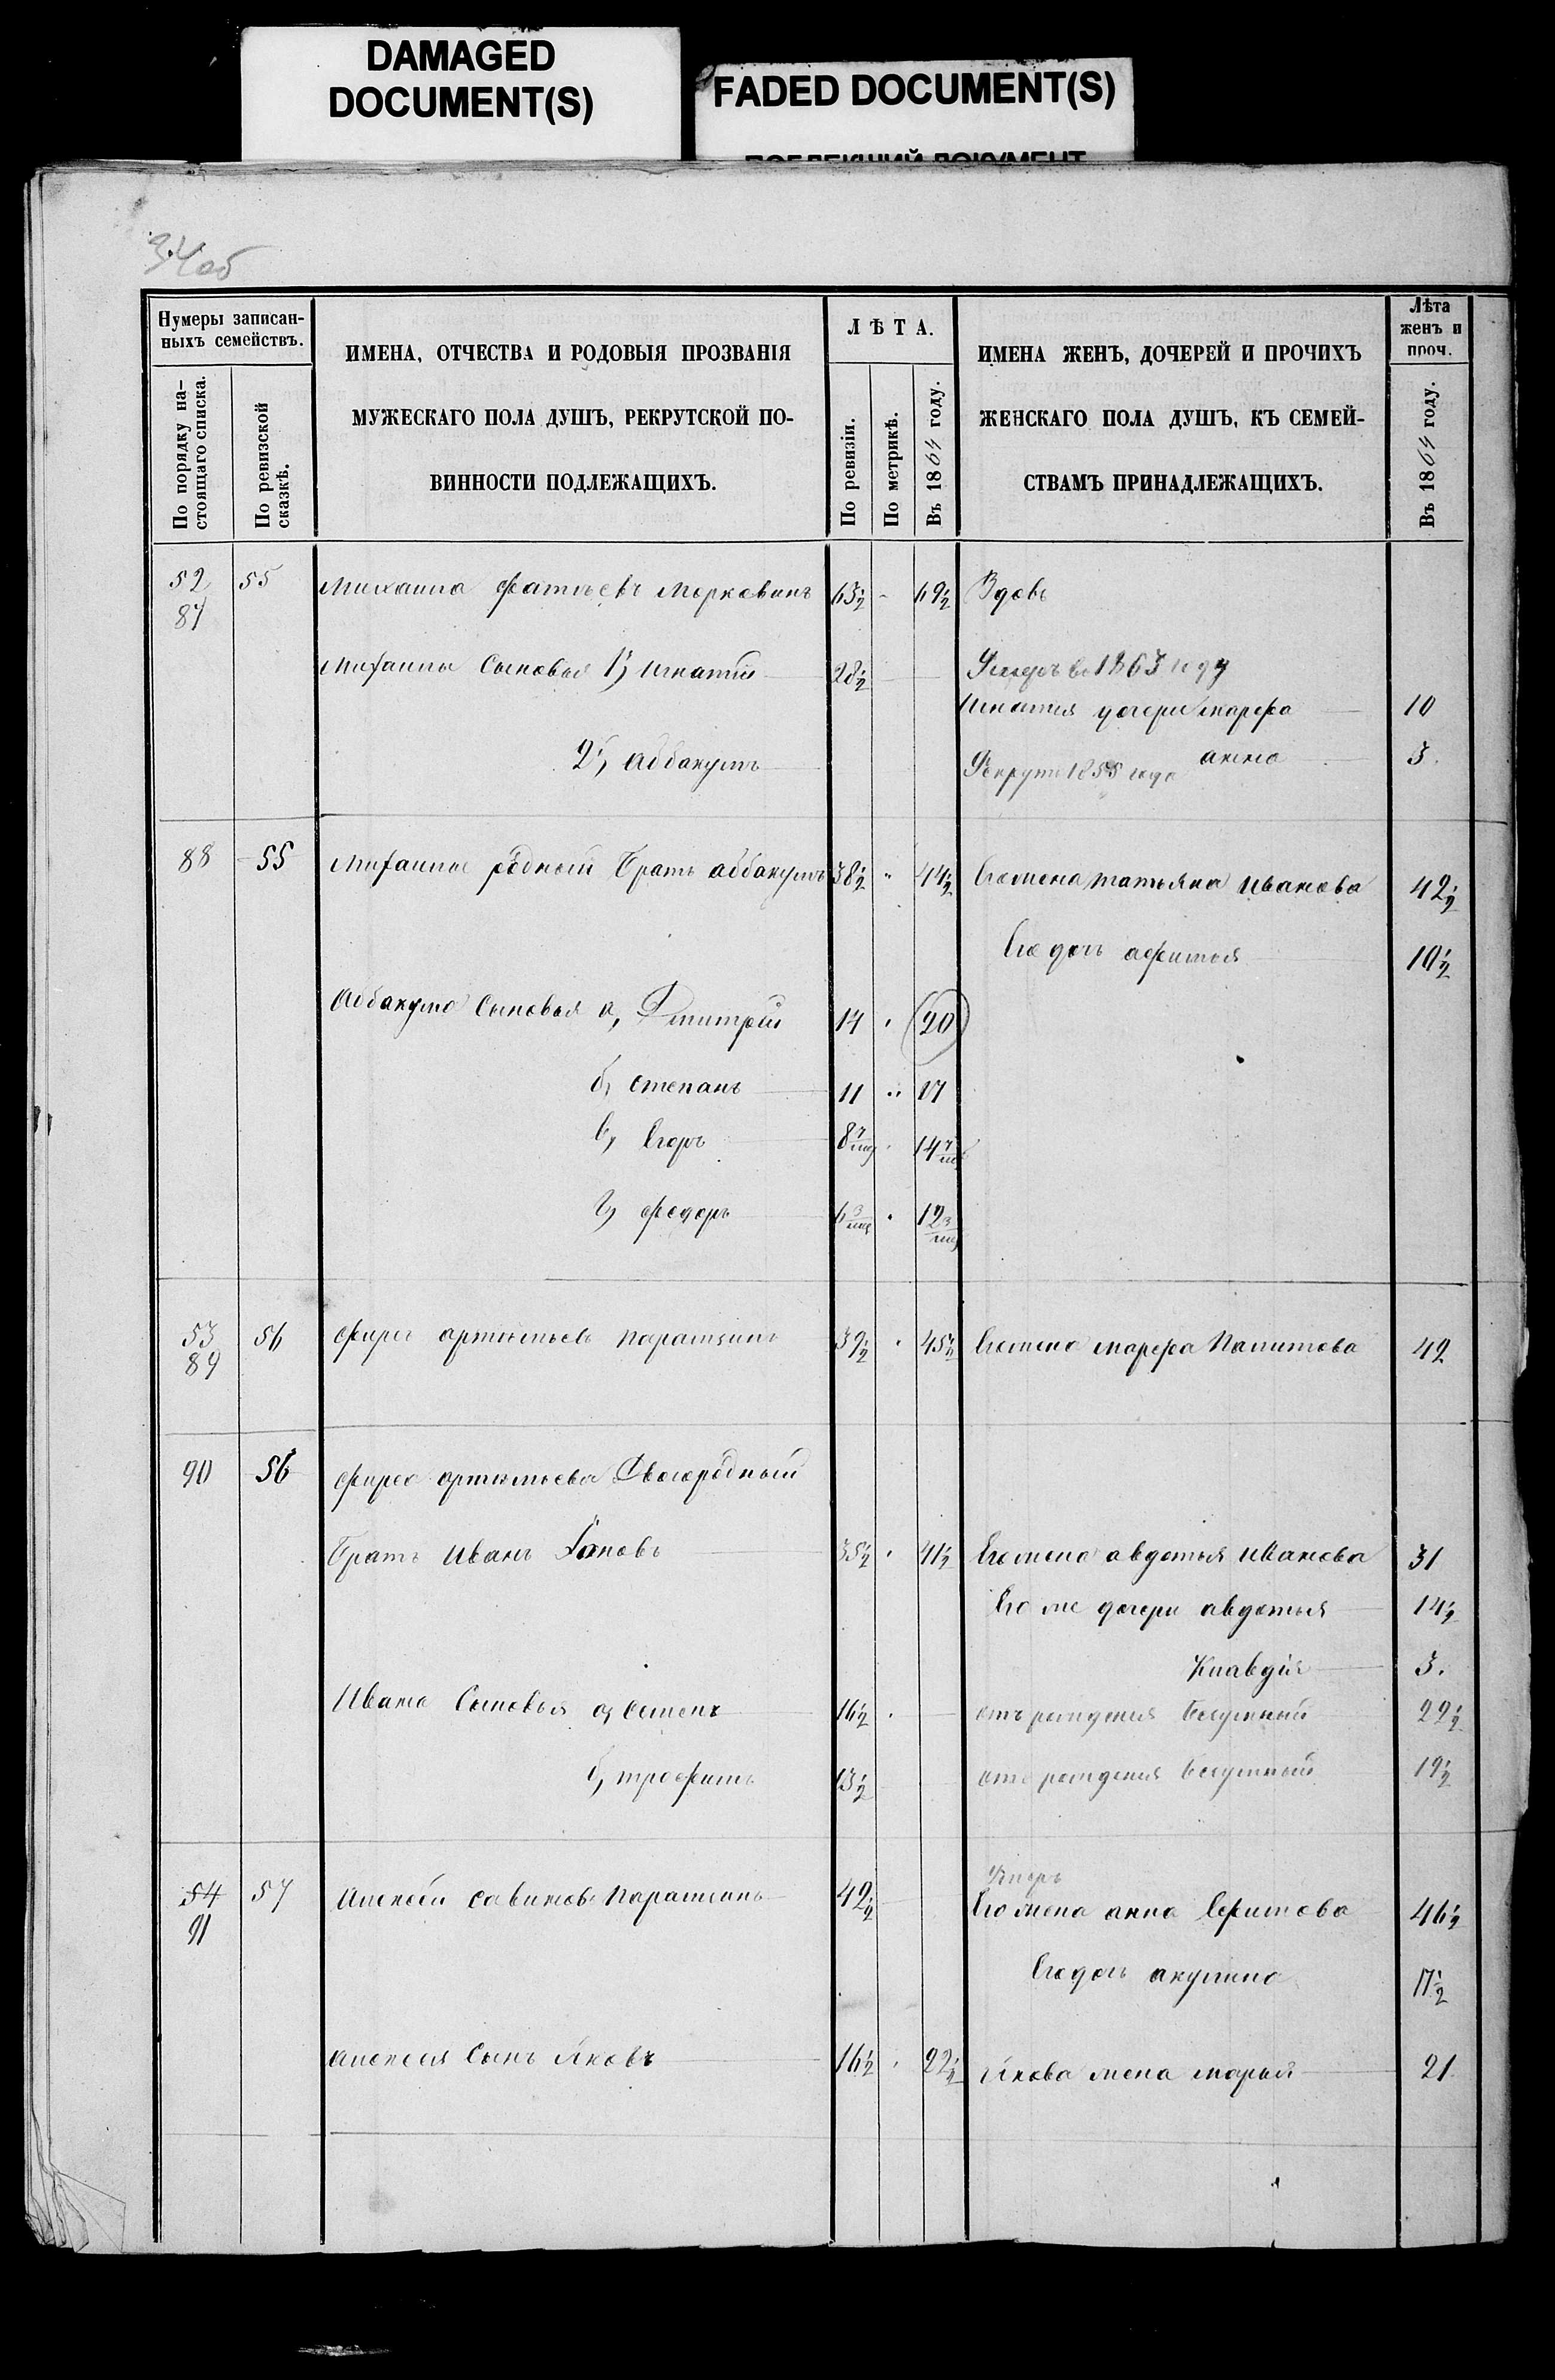 DAMAGED
DOCUMENT(S)
FADED DOCUMENT(S)
34об
Нумеры записан-
ныхъ семействъ.
По порядку на-
стоящаго списка.
По ревизской
сказкѣ.
ИМЕНА, ОТЧЕСТВА И РОДОВЫЯ ПРОЗВАНІЯ
МУЖЕСКАГО ПОЛА ДУШЪ, РЕКРУТСКОЙ ПО-
ВИННОСТИ ПОДЛЕЖАЩИХЪ.
ЛѢТА.
По ревизіи.
По метрикѣ.
Въ 1864 году.
ИМЕНА ЖЕНЪ, ДОЧЕРЕЙ И ПРОЧИХЪ
ЖЕНСКАГО ПОЛА ДУШЪ, КЪ СЕМЕЙ-
СТВАМЪ ПРИНАДЛЕЖАЩИХЪ.
Лѣта
женъ и
проч.
Въ 1864 году.
52 55 Михаила Фатѣевъ Морковинъ 63½ - 69½ Вдовъ
87
Михаилы Сыновья 1) Игнатій 28½ Умеръ въ 1863 году
Игнатия дочери марфа 10
2) аббакумъ Рекрутъ 1855 года анна 3.
88 55 Михаилы родный братъ аббакумъ 38½ " 44½ Его жена татьяна иванова 42½
Его дочь афимья 10½
Аббакума Сыновья а, Дмитрій 14 " 20
б, степанъ 11 " 17
в, Егоръ 8 7/мц " 14 7/мц
г, федоръ 6 3/мц " 12 3/мц
53 56 фирсъ артемьевъ 39½ " 45½ Его жена марфа 42
89
90 56 фирса артемьева Двоюродный
братъ иванъ 35½ " 41½ Его жена авдотья иванова 31
Его же дочери авдотья 14½
Клавдія 3.
Ивана Сыновья а, 16½ " отъ рождения безумный 22½
б, трофимъ 13½ отъ рождения безумный 19½
54 57 Алексѣй савиновъ 42½ Умеръ
91
Его жена анна Ефимова 46½
Его дочь акулина 17½
алексея Сынъ яковъ 16½ " 22½ якова жена марья 21